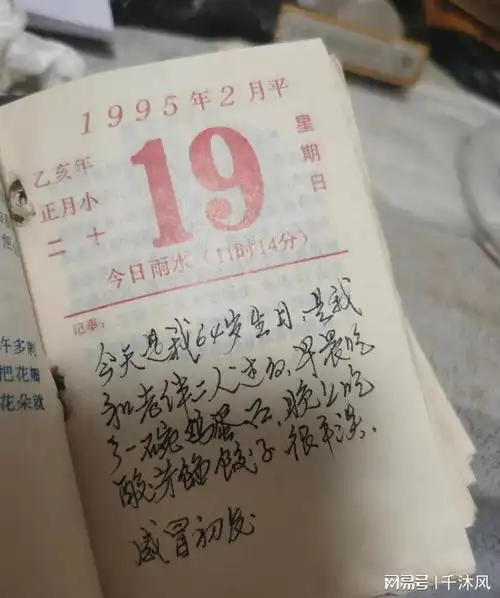 1995年2月平
乙亥年
正月小
二十
19
星期日
今日雨水(11时14分)
记事:
今天是我64岁生日,是我
和老伴二人过的,早晨吃
了一碗鸡蛋,晚上吃
酸菜馅饺子,很平淡.
感冒初
多刺
把花瓣
花朵就
网易号 | 千沐风